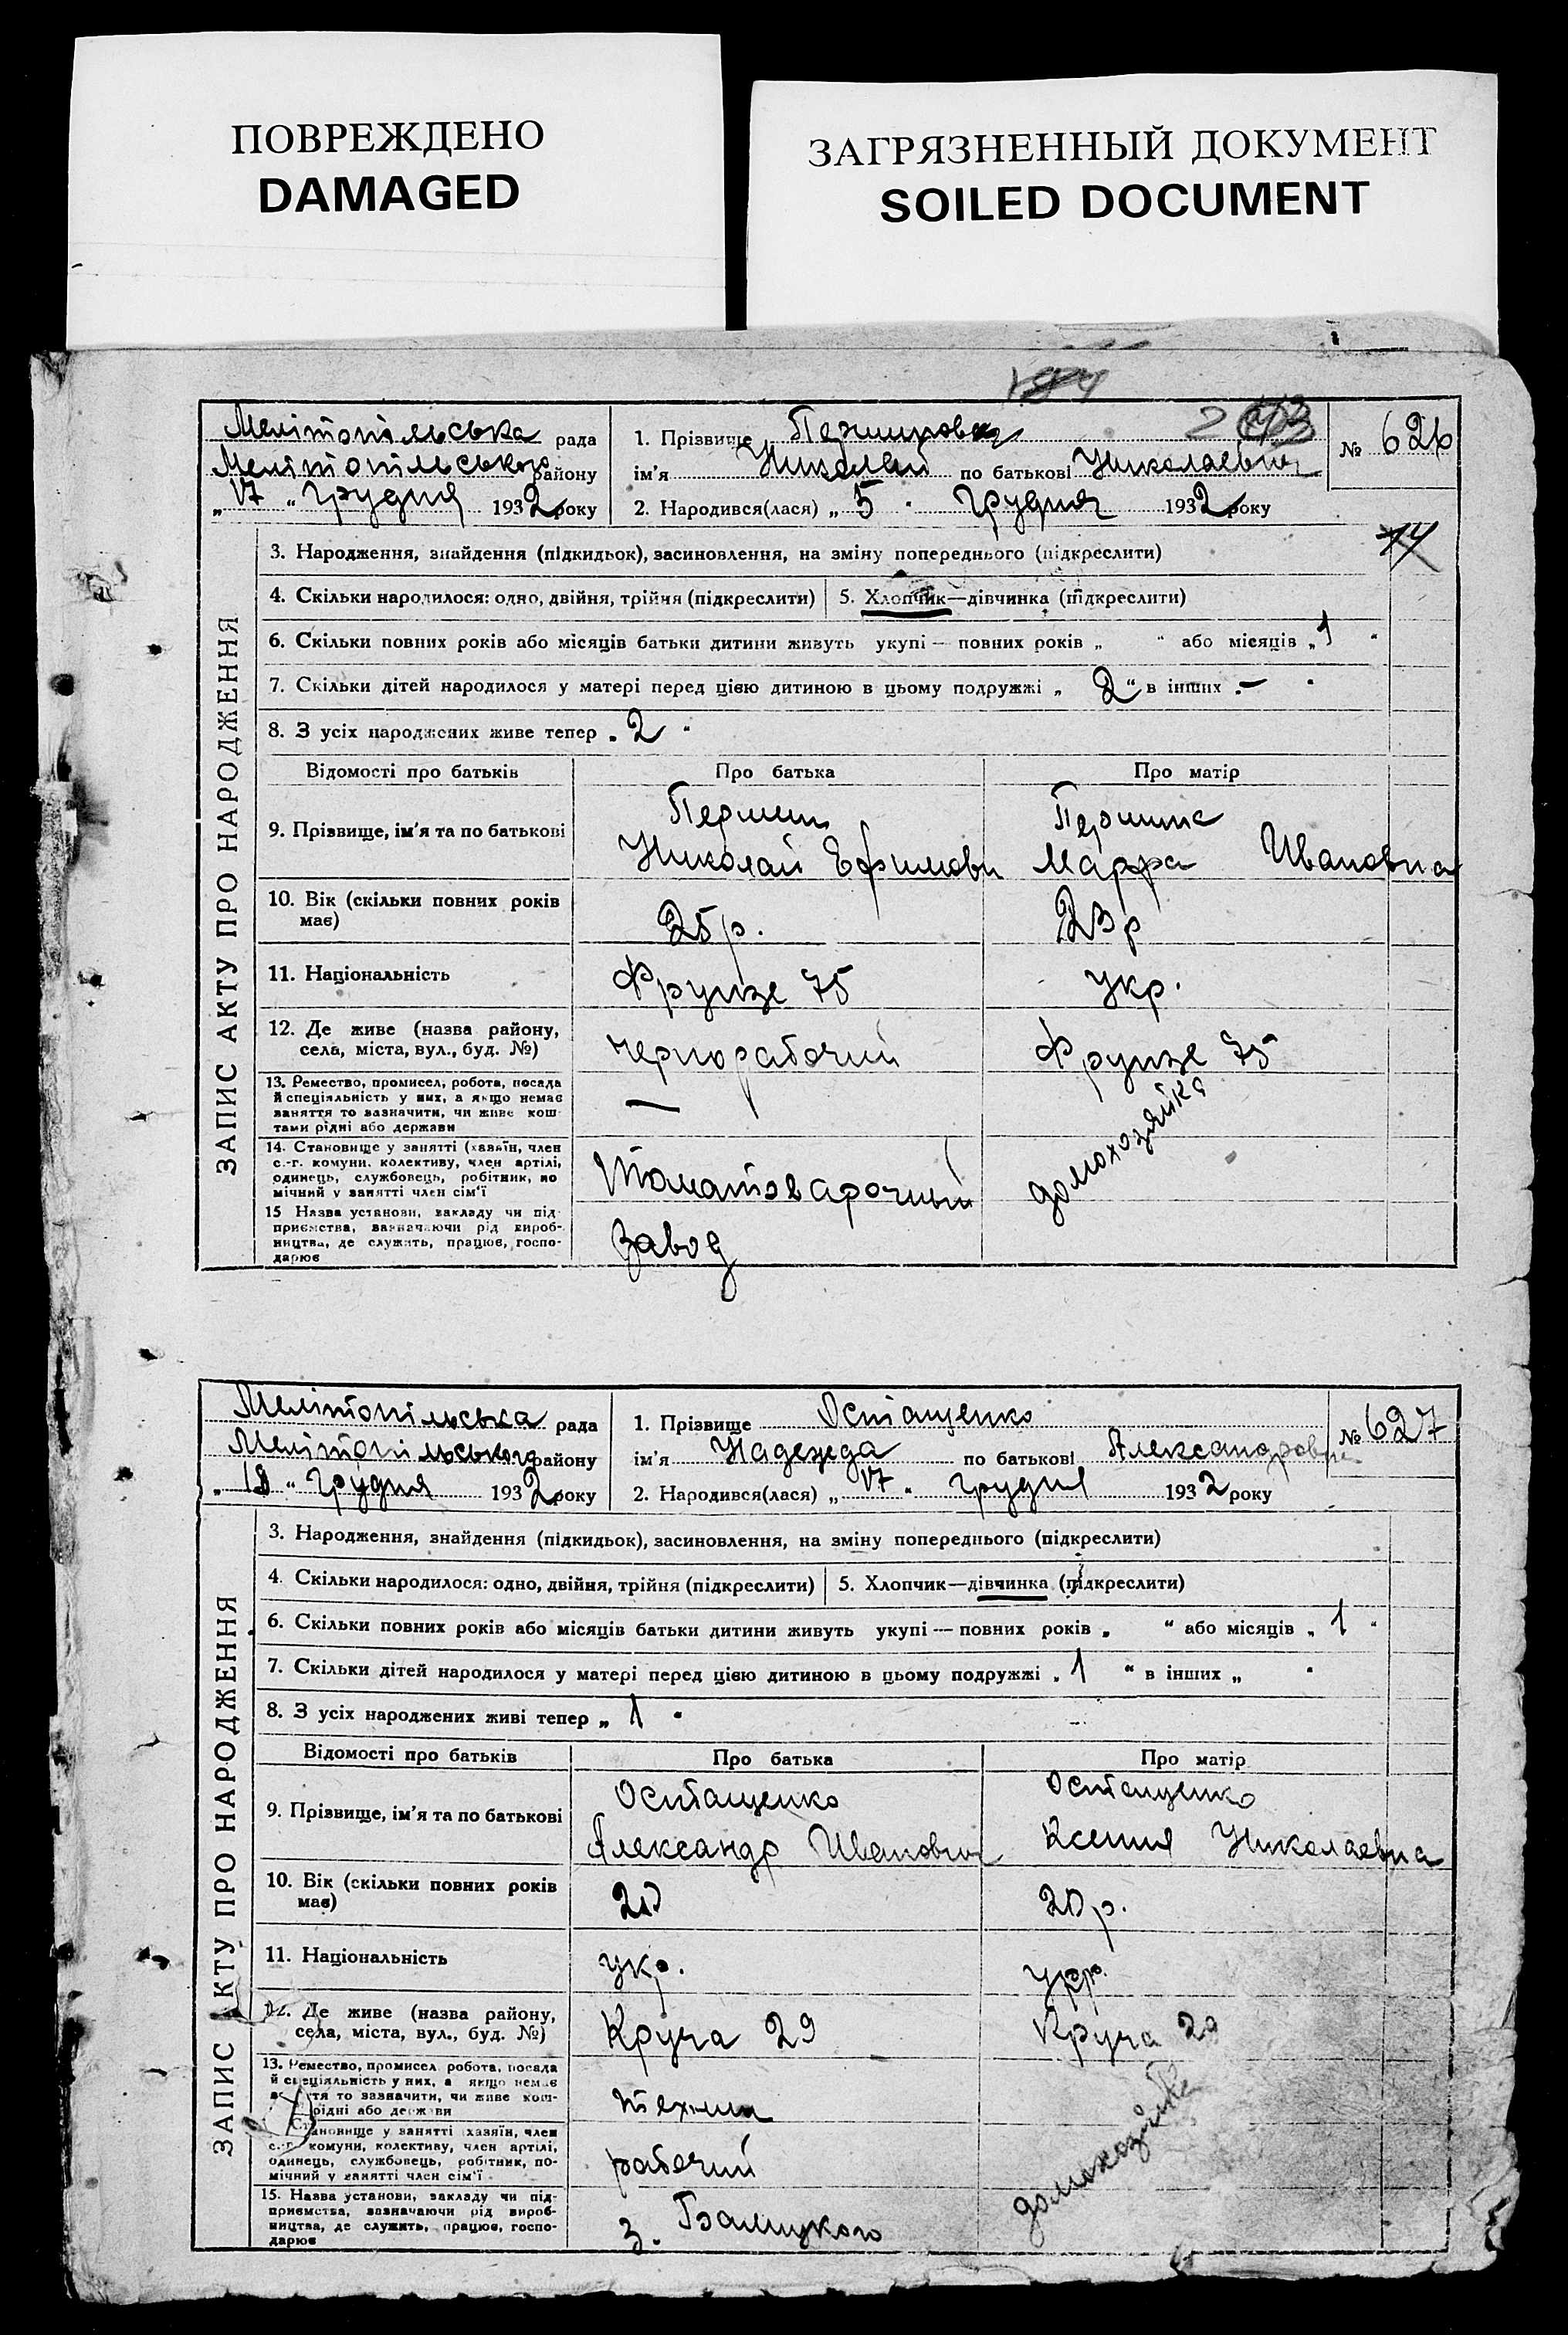 ПОВРЕЖДЕНО
DAMAGED
ЗАГРЯЗНЕННЫЙ ДОКУМЕНТ
SOILED DOCUMENT
Мелітопільська рада
Мелітопільського району
„17“ грудня 1932 року
1. Прізвище
ім'я Николай по батькові Николаевич
2. Народився(лася) „5“ грудня 1932 року
№ 626
14
ЗАПИС АКТУ ПРО НАРОДЖЕННЯ
3. Народження, знайдення (підкидьок), засиновлення, на зміну попереднього (підкреслити)
4. Скільки народилося: одно, двійня, трійня (підкреслити) 5. Хлопчик—дівчинка (підкреслити)
6. Скільки повних років або місяців батьки дитини живуть укупі — повних років „ “ або місяців „1“
7. Скільки дітей народилося у матері перед цією дитиною в цьому подружжі „2“ в інших „—“
8. З усіх народжених живе тепер „2“
Відомості про батьків Про батька Про матір
9. Прізвище, ім'я та по батькові
Першин
Николай Ефимови
Першина
Марфа Ивановна
10. Вік (скільки повних років має)
25 р.
23 р
11. Національність
Фрунзе 75
укр.
12. Де живе (назва району, села, міста, вул., буд. №)
чернорабочий
Фрунзе 75
13. Ремество, промисел, робота, посада й спеціяльність у них, а якщо немає заняття то зазначити, чи живе коштами рідні або держави
—
домохозяйка
14. Становище у занятті (хазяїн, член с.-г. комуни, колективу, член артілі, одинець, службовець, робітник, помічний у занятті член сім'ї
Томатоварочный
15 Назва установи, закладу чи підприємства, зазначаючи рід виробництва, де служить, працює, господарює
завод
Мелітопільська рада
Мелітопільського району
„18“ грудня 1932 року
1. Прізвище Остащенко
ім'я Надежда по батькові Александровна
2. Народився(лася) „17“ грудня 1932 року
№ 627
ЗАПИС АКТУ ПРО НАРОДЖЕННЯ
3. Народження, знайдення (підкидьок), засиновлення, на зміну попереднього (підкреслити)
4. Скільки народилося: одно, двійня, трійня (підкреслити) 5. Хлопчик—дівчинка (підкреслити)
6. Скільки повних років або місяців батьки дитини живуть укупі — повних років „ “ або місяців „1“
7. Скільки дітей народилося у матері перед цією дитиною в цьому подружжі „1“ в інших „ “
8. З усіх народжених живі тепер „1“
Відомості про батьків Про батька Про матір
9. Прізвище, ім'я та по батькові
Остащенко
Александр Иванович
Остащенко
Ксения Николаевна
10. Вік (скільки повних років має)
20 р.
11. Національність
укр.
укр.
12. Де живе (назва району, села, міста, вул., буд. №)
Круча 29
Круча 29
13. Ремество, промисел робота, посада й спеціяльність у них, а якщо немає заняття то зазначити, чи живе коштами рідні або держави
техник
домохозяйка
Становище у занятті (хазяїн, член с.-г. комуни, колективу, член артілі, одинець, службовець, робітник, помічний у занятті член сім'ї
рабочий
15. Назва установи, закладу чи підприємства, зазначаючи рід виробництва, де служить, працює, господарює
з. Балицкого